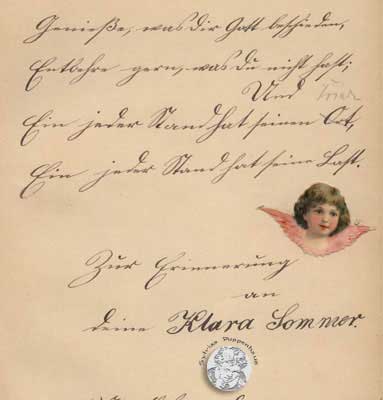 Genieße, was dir Gott beschieden,
Entbehre gern, was du nicht hast;
Und
Ein jeder Stand hat seinen Ort,
Ein jeder Stand hat seine Last.
Zur Erinnerung
an
deine Klara Sommer.
Sylvias Puppenhaus